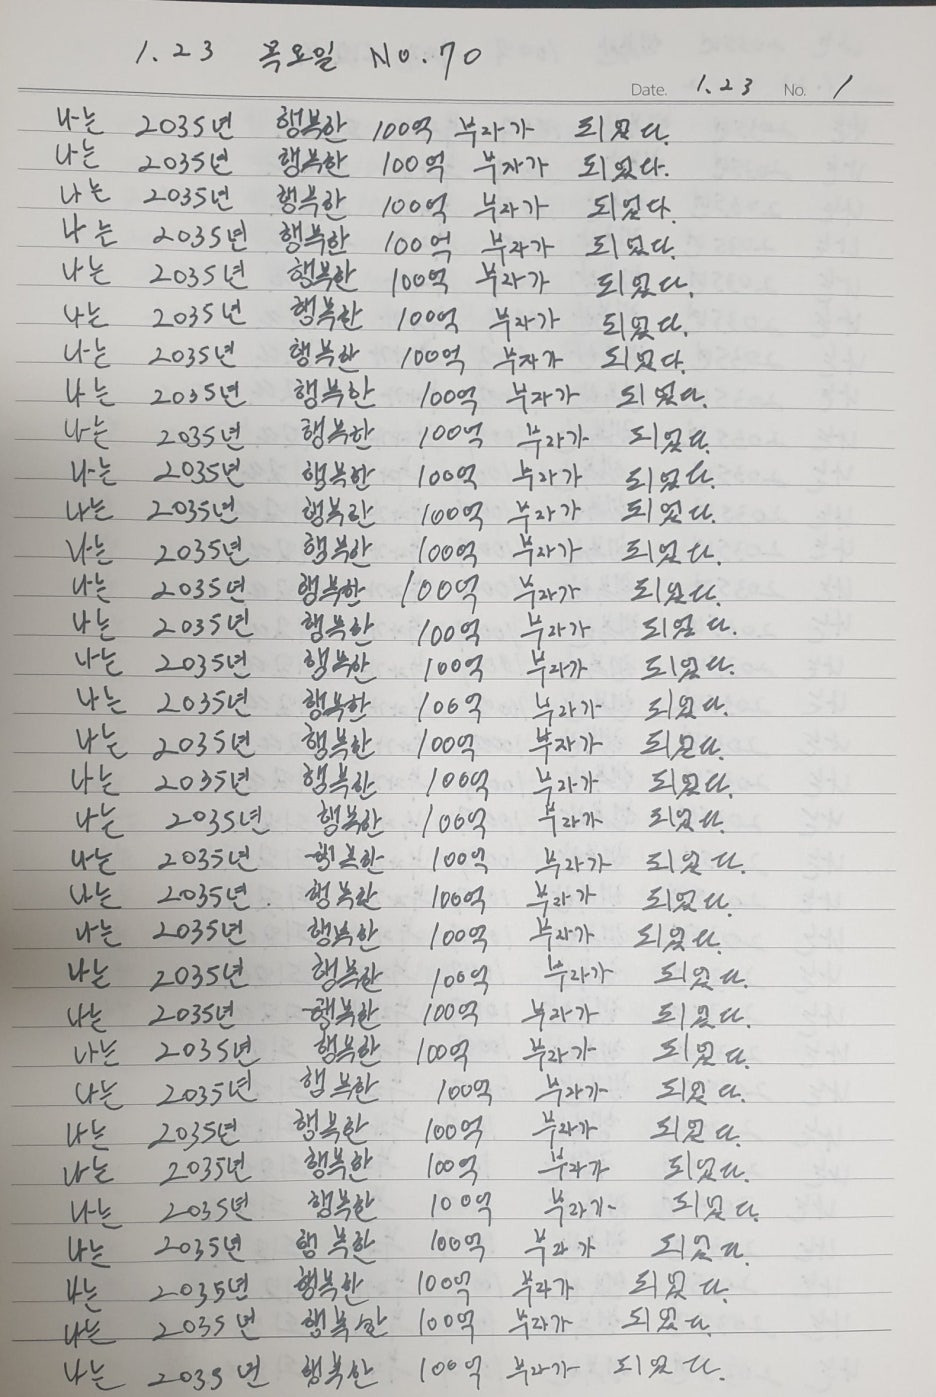 1.23 목요일 No.70
Date. 1.23 No. 1
나는 2035년 행복한 100억 부자가 되었다.
나는 2035년 행복한 100억 부자가 되었다.
나는 2035년 행복한 100억 부자가 되었다.
나는 2035년 행복한 100억 부자가 되었다.
나는 2035년 행복한 100억 부자가 되었다.
나는 2035년 행복한 100억 부자가 되었다.
나는 2035년 행복한 100억 부자가 되었다.
나는 2035년 행복한 100억 부자가 되었다.
나는 2035년 행복한 100억 부자가 되었다.
나는 2035년 행복한 100억 부자가 되었다.
나는 2035년 행복한 100억 부자가 되었다.
나는 2035년 행복한 100억 부자가 되었다.
나는 2035년 행복한 100억 부자가 되었다.
나는 2035년 행복한 100억 부자가 되었다.
나는 2035년 행복한 100억 부자가 되었다.
나는 2035년 행복한 100억 부자가 되었다.
나는 2035년 행복한 100억 부자가 되었다.
나는 2035년 행복한 100억 부자가 되었다.
나는 2035년 행복한 100억 부자가 되었다.
나는 2035년 행복한 100억 부자가 되었다.
나는 2035년 행복한 100억 부자가 되었다.
나는 2035년 행복한 100억 부자가 되었다.
나는 2035년 행복한 100억 부자가 되었다.
나는 2035년 행복한 100억 부자가 되었다.
나는 2035년 행복한 100억 부자가 되었다.
나는 2035년 행복한 100억 부자가 되었다.
나는 2035년 행복한 100억 부자가 되었다.
나는 2035년 행복한 100억 부자가 되었다.
나는 2035년 행복한 100억 부자가 되었다.
나는 2035년 행복한 100억 부자가 되었다.
나는 2035년 행복한 100억 부자가 되었다.
나는 2035년 행복한 100억 부자가 되었다.
나는 2035년 행복한 100억 부자가 되었다.